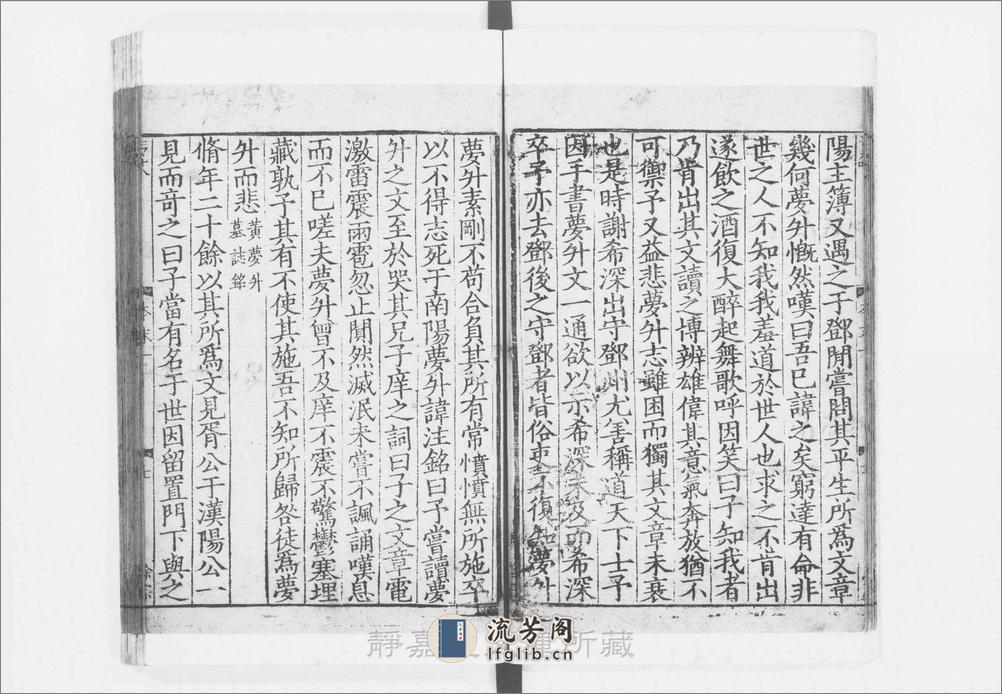 陽主簿又遇之于鄧間嘗問其平生所爲文章
幾何夢升慨然嘆曰吾已諱之矣窮達有命非
世之人不知我我羞道於世人也求之不肯出
遂飲之酒復大醉起舞歌呼因笑曰子知我者
乃肯出其文讀之博辨雄偉其意氣奔放猶不
可禦予又益悲夢升志雖困而獨其文章未衰
也是時謝希深出守鄧州尤喜稱道天下士予
因手書夢升文一通欲以示希深未及而希深
卒予亦去鄧後之守鄧者皆俗吏不復知夢升
夢升素剛不苟合負其所有常憤憤無所施卒
以不得志死于南陽夢升諱注銘曰予嘗讀夢
升之文至於哭其兄子庠之詞曰子之文章電
激雷震雨雹忽止闃然滅泯未嘗不諷誦嘆息
而不已嗟夫夢升曾不及庠不震不驚鬱塞埋
藏孰予其有不使其施吾不知所歸咎徒爲夢
升而悲黃夢升
墓誌銘
脩年二十餘以其所爲文見胥公于漢陽公一
見而奇之曰子當有名于世因留置門下與之
靜嘉 所藏
流芳阁
lfglib.cn